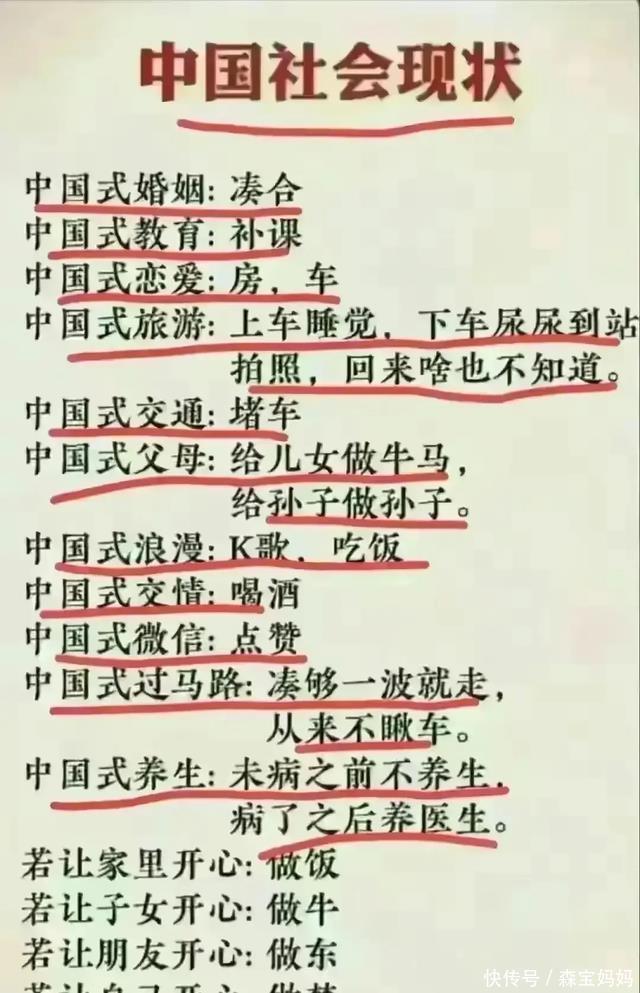 中国社会现状
中国式婚姻: 凑合
中国式教育: 补课
中国式恋爱: 房，车
中国式旅游: 上车睡觉，下车尿尿到站
拍照，回来啥也不知道。
中国式交通: 堵车
中国式父母: 给儿女做牛马，
给孙子做孙子。
中国式浪漫: K歌，吃饭
中国式交情: 喝酒
中国式微信: 点赞
中国式过马路: 凑够一波就走，
从来不瞅车。
中国式养生: 未病之前不养生，
病了之后养医生。
若让家里开心: 做饭
若让子女开心: 做牛
若让朋友开心: 做东
快传号／森宝妈妈